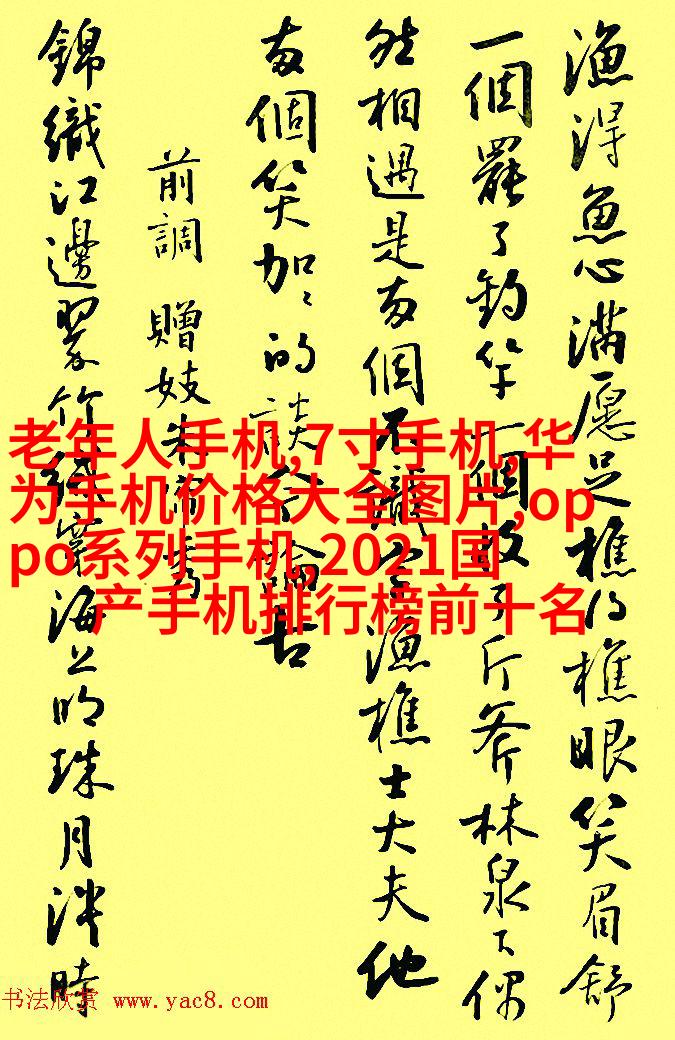 漁得魚心滿愿足樵得樵眼笑眉舒
一個罷了釣竿一個收了斤斧林泉下偶
然相遇是兩個不識字漁樵士大夫他
兩個笑加加的談今論古
前調 贈妓朱簾秀
錦織江邊翠竹絨穿海上明珠月淡時
老年人手机,7寸手机,华
为手机价格大全图片,op
po系列手机,2021国
产手机排行榜前十名
书法欣赏 www.yac8.com